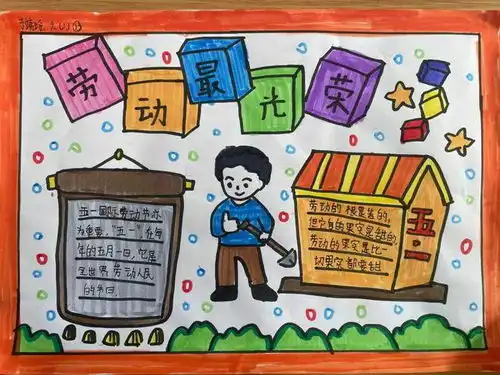 劳动最光荣
五一国际劳动节亦
为重要。"五一"在每
年的五月一日，它是
全世界劳动人民
的节日。
劳动的根是苦的，
但它自的果实是甜的，
劳动的果实是比一
切果实都要甜
五·一